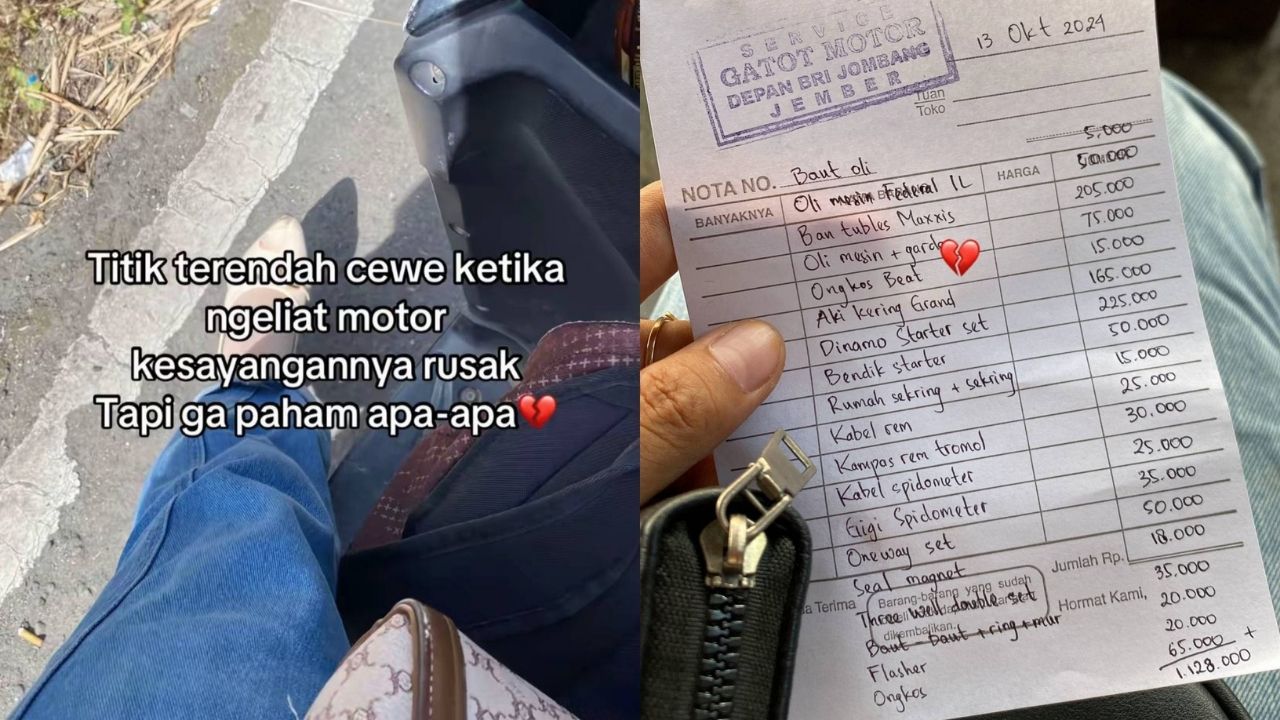 Titik terendah cewe ketika
ngeliat motor
kesayangannya rusak
Tapi ga paham apa-apa💔
SERVICE
GATOT MOTOR
DEPAN BRI JOMBANG
JEMBER
13 Okt 2024
Tuan
Toko
NOTA NO. Baut oli 5.000
BANYAKNYA HARGA
Oli mesin Federal 1L 50.000
Ban tubles Maxxis 205.000
Oli mesin + garda 75.000
Ongkos Beat 15.000
Aki kering Grand 165.000
Dinamo Starter set 225.000
Bendik starter 50.000
Rumah sekring + sekring 15.000
Kabel rem 25.000
Kampas rem tromol 30.000
Kabel spidometer 25.000
Gigi Spidometer 35.000
Oneway set 50.000
Seal magnet 18.000
Jumlah Rp.
Three well double set 35.000
Baut - baut + ring + mur 20.000
Flasher 20.000
Ongkos 65.000 +
1.128.000
Terima
Barang-barang yang sudah
dikembalikan.
Hormat Kami,